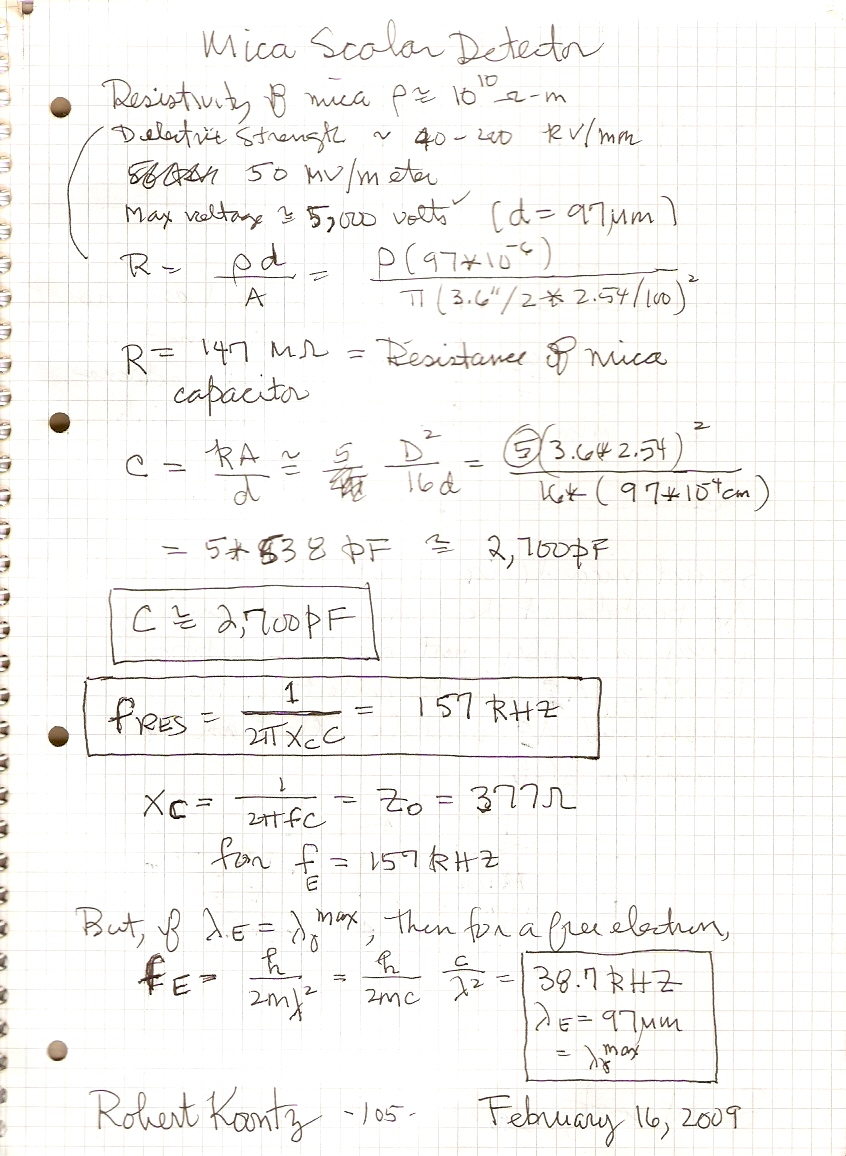 Mica Scalar Detector
Resistivity of mica ρ ≅ 10^10 Ω-m
Dielectric Strength ~ 40-200 kV/mm
50 MV/meter
Max voltage ≅ 5,000 volts ✓ (d = 97μm)
R = ρd/A = ρ(97*10^-6)/π(3.6"/2 * 2.54/100)^2
R = 147 MΩ = Resistance of mica
capacitor
C = kA/d ≅ 5 D^2/16d = 5(3.6*2.54)^2/16*(97*10^-4cm)
= 5*538 pF ≅ 2,700pF
C ≅ 2,700pF
fRES = 1/2πXcC = 157 kHz
Xc = 1/2πfC = Z0 = 377Ω
for fE = 157 kHz
But, if λE = λγ^max, then for a free electron,
fE = h/2mλ^2 = h/2mc c/λ^2 = 38.7 kHz
λE = 97μm
= λγ^max
Robert Koontz -105- February 16, 2009